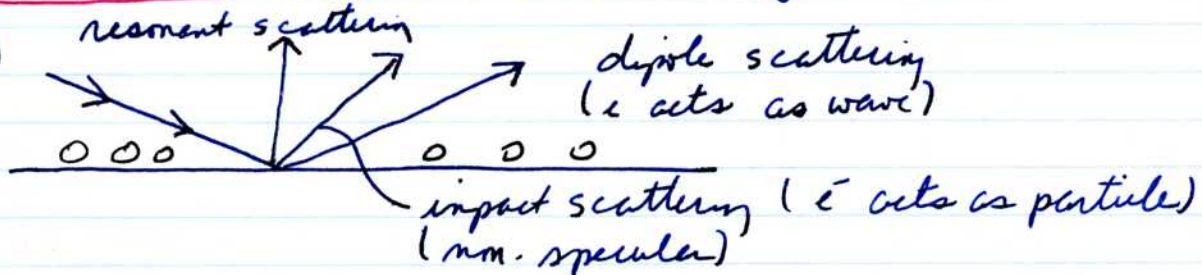 )
resonant scattering
dipole scattering
(e acts as wave)
impact scattering (ē acts as particle)
(non. specular)